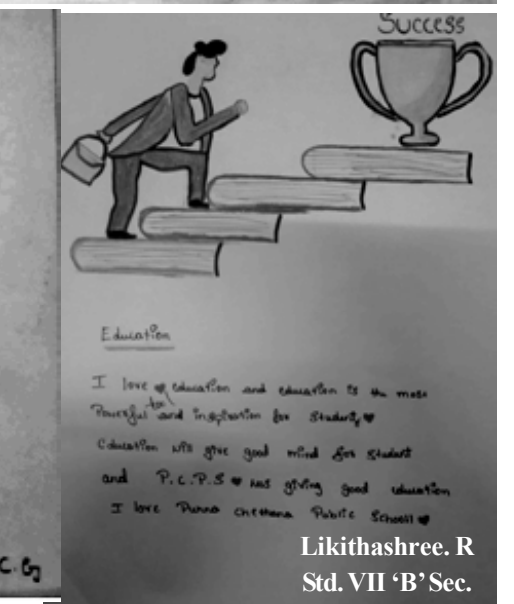 Success
Education
I love education and education is the most
Powerful tool and inspiration for Student
Education will give good mind for student
and P.C.P.S has giving good education
I love Purna chethana Public School
Likithashree. R
Std. VII ‘B’ Sec.
C. G